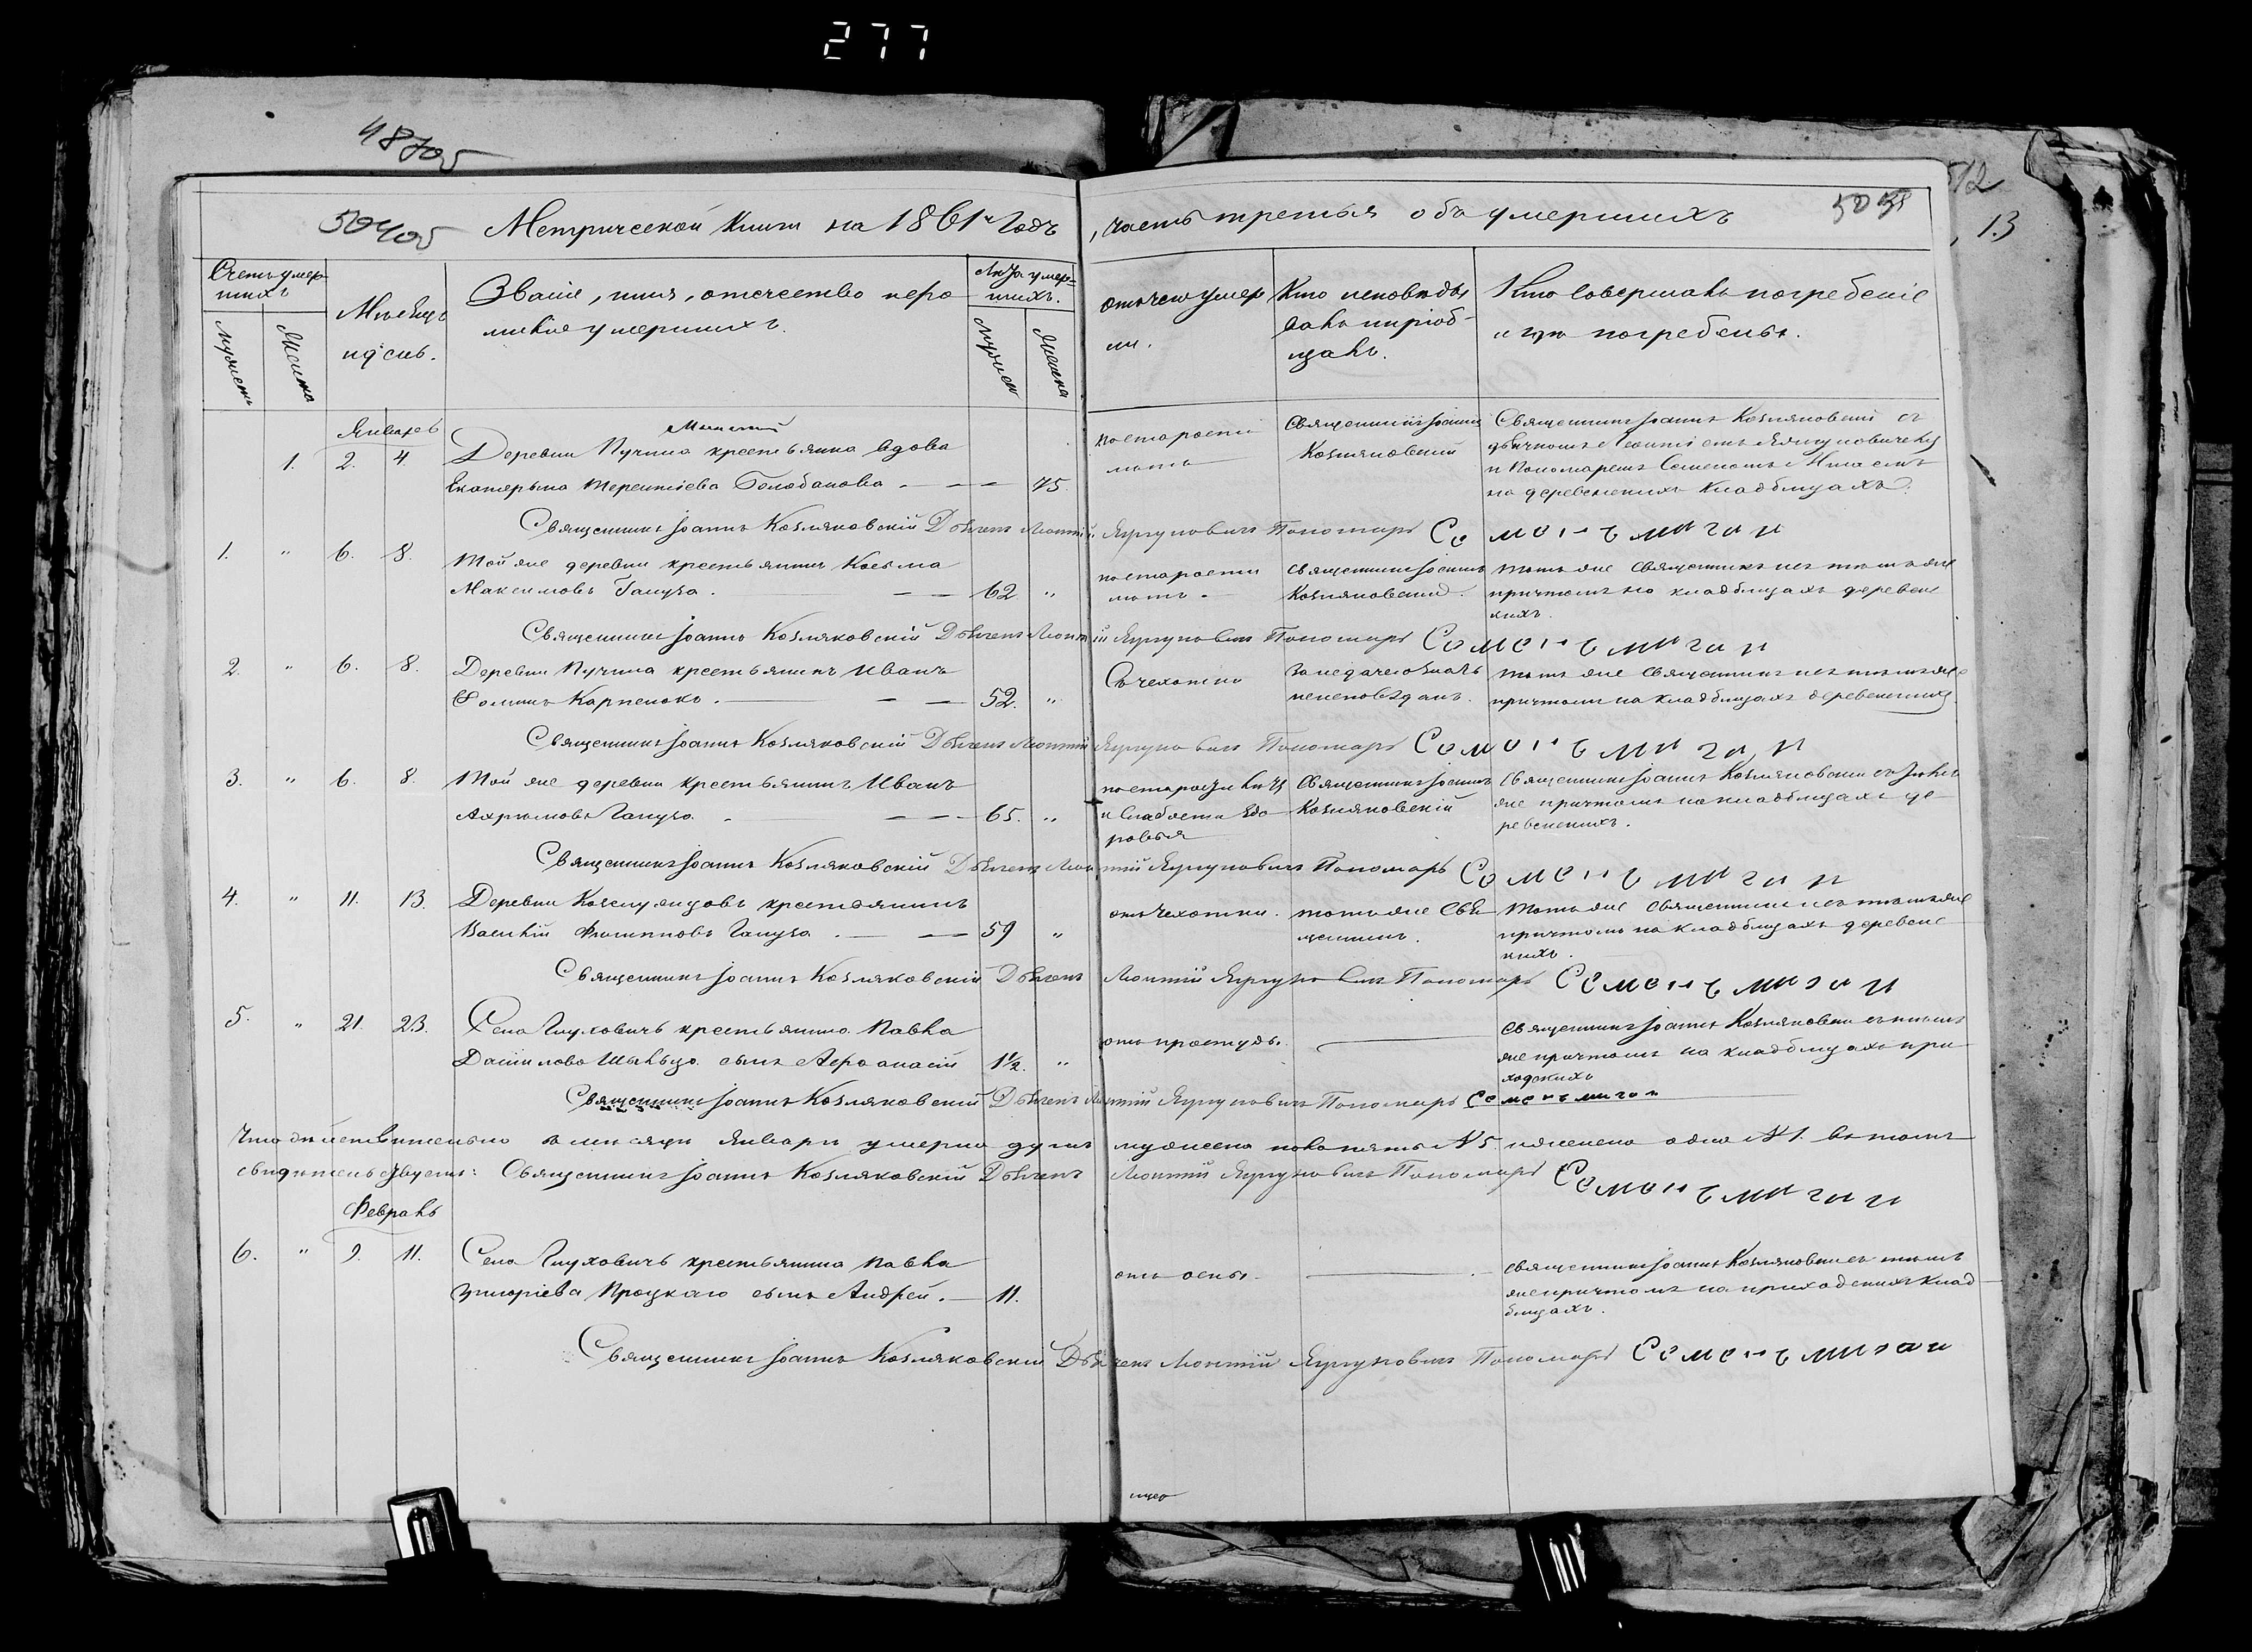 277
487об
504об
Метрической Книги на 1861й Годъ, часть третья объ умершихъ
505
512
13
Счетъ умер-
шихъ
Мужеск
Женска
Мѣсяцъ
и день.
Званіе, имя, отечество и фа
миліе умершихъ.
Лѣта умер=
шихъ.
Мужеск
Женска
отъ чего умер
ли.
Кто исповѣды
валъ и пріоб-
щалъ.
Кто Совершалъ погребеніе
и гдѣ погребены.
Январь
1. 2. 4. Деревни Пучина крестьянка вдова
Екатерына Терентіева Голобанова 75.
по старости
лѣтъ
Священникъ Іоаннъ
Козляковскій
Священникъ Іоаннъ Козляковскій съ
дьячкомъ Леонтіемъ Яргуновичемъ
и Пономаремъ Семеномъ Мигаемъ
на деревенскихъ Кладбищахъ.
Священникъ Іоаннъ Козляковскій Дьячекъ Леонтій Яргуновичъ Пономарь Семенъ мигай
1. " 6. 8. Той же деревни крестьянинъ Косьма
Максимовъ Гануза. 62 "
по старости
лѣтъ.
Священникъ Іоаннъ
Козляковскій.
тотъ же Священникъ изъ тѣмъ же
причтомъ на кладбищахъ деревенс
кихъ.
Священникъ Іоаннъ Козляковскій Дьячекъ Леонтій Яргуновичъ Пономарь Семенъ мигай
2. " 6. 8. Деревни Пучина крестьянинъ Иванъ
Фоминъ Карпенокъ. 52. "
Съ чехотки
неисповѣданъ.
тотъ же Священникъ изъ тѣмъ же
причтомъ на кладбищахъ деревенскихъ
Священникъ Іоаннъ Козляковскій Дьячекъ Леонтій Яргуновичъ Пономарь Семенъ мигай
3. " 6. 8. Той же деревни крестьянинъ Иванъ
Гануза. 65. "
и слабости здо
ровья
Священникъ Іоаннъ
Козляковскій
Священникъ Іоаннъ Козляковскій съ тѣмъ
же причтомъ на кладбищахъ де-
ревенскихъ.
Священникъ Іоаннъ Козляковскій Дьячекъ Леонтій Яргуновичъ Пономарь Семенъ мигай
4. " 11. 13. Деревни крестьянинъ
Василій Филипповъ Гануза. 59 "
отъ чехотки.
тотъ же Свя
щенникъ.
Тотъ же священникъ изъ тѣмъ же
причтомъ на кладбищахъ деревенс
кихъ.
Священникъ Іоаннъ Козляковскій Дьячекъ Леонтій Яргуновичъ Пономарь Семенъ мигай
5. " 21. 23. Села Глуховичъ крестьянина Павла
Данилова сынъ Афанасій 1½. "
отъ простуды.
Священникъ Іоаннъ Козляковскій съ тѣмъ
же причтомъ на кладбищахъ при
ходскихъ
Священникъ Іоаннъ Козляковскій Дьячекъ Леонтій Яргуновичъ Пономарь Семенъ мигай
Что дѣйствительно в мѣсяцѣ Январѣ умерло душъ мужеска пола пять №5. и женска одна №1. въ томъ
свидѣтельствуемъ: Священникъ Іоаннъ Козляковскій Дьячекъ Леонтій Яргуновичъ Пономарь Семенъ мигай
Февраль
6. " 9. 11. Села Глуховичъ крестьянина Павла
Григоріева Процкаго сынъ Андрей. 11.
отъ оспы.
Священникъ Іоаннъ Козляковскій съ тѣмъ
же причтомъ на приходскихъ Клад
бищахъ.
Священникъ Іоаннъ Козляковскій Дьячекъ Леонтій Яргуновичъ Пономарь Семенъ мигай